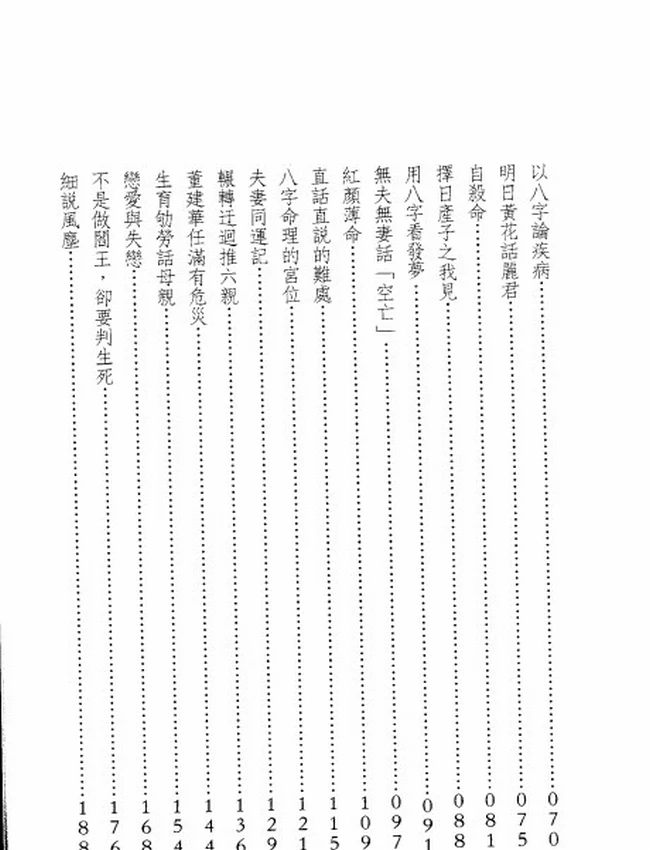 以八字論疾病……070
明日黃花話麗君……075
自殺命……081
擇日產子之我見……088
用八字看發夢……091
無夫無妻話「空亡」……097
紅顏薄命……109
直話直説的難處……115
八字命理的宮位……121
夫妻同運記……129
輾轉迂迴推六親……136
董建華任滿有危災……144
生育劬勞話母親……154
戀愛與失戀……168
不是做閻王，卻要判生死……176
細説風塵……188